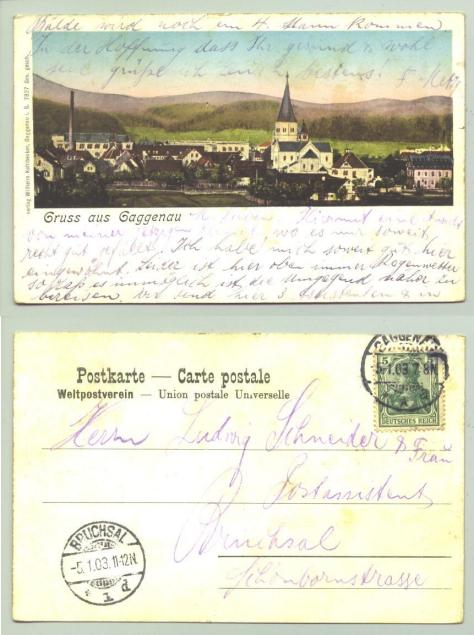 Bälde wird noch ein 4. Mann kommen
In der Hoffnung dass Ihr gesund & wohl
seid grüße ich euch bestens!
Gruss aus Gaggenau
M. Lieben! Hiermit eine Ansicht
von meiner jetzigen wo es mir soweit
recht gut gefällt. Ich habe mich soweit gut hier
eingewöhnt. Leider ist hier oben immer Regenwetter
sodaß es unmöglich ist die Umgegend näher zu
bereisen. Wir sind hier 3 Assistenten & in
Postkarte — Carte postale
Weltpostverein — Union postale Universelle
GAGGENAU
5.1.03.7-8N
5
DEUTSCHES REICH
Herrn Ludwig Schneider & Frau
Postassistent
Bruchsal
Schönbornstrasse
BRUCHSAL
-5.1.03.11-12N